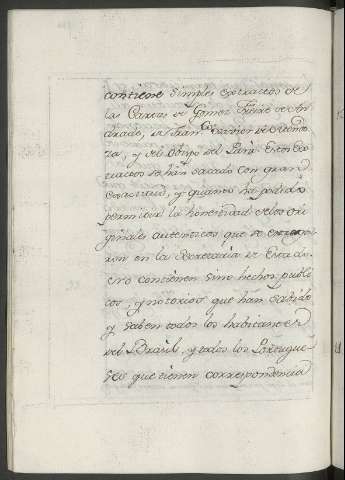 contiene simples extractos de
las Cartas de Gomez Freire de An
drade, de Fran.co Xavier de Mendo
za, y del Obispo del Parà. Estos Ex
tractos se han sacado con grand
exactitud, y quanto ha podido
permitir la honestidad de los ori
ginales autenticos que se
ron en la Secretaria de Estado:
no contienen sino hechos publi
cos, y notorios que han sabido
y saben todos los habitantes
del Brasil, y todos los Portugue
ses que tienen correspondencia